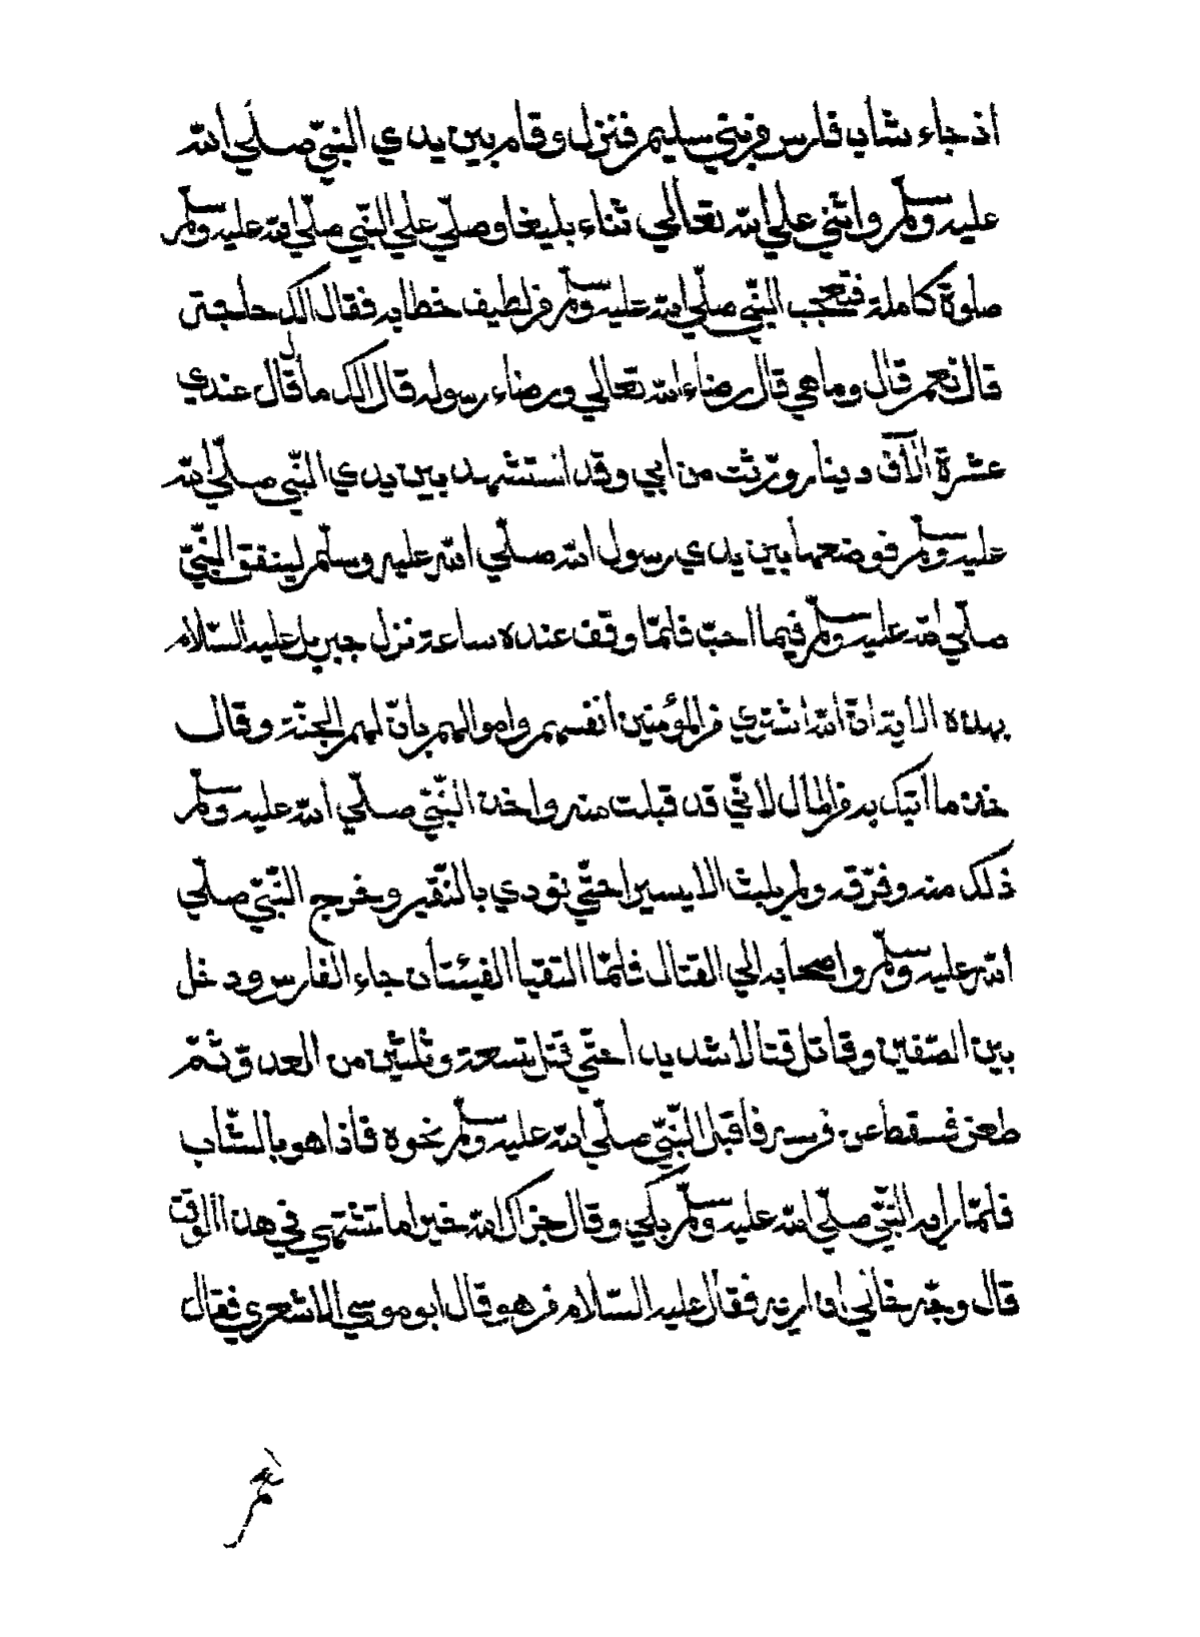 اذ جاء شاب فارس من بني سليم فنزل وقام بين يدي النبيّ صلّي الله
عليه وسلم واثني علي الله تعالي ثناء بليغا وصلّي علي النّبي صلّي الله عليه وسلم
صلوة كاملة فتعجب النّبي صلّي الله عليه وسلم من لطيف خطابه فقال الك حاجة
قال نعم قال وما هي قال رضاء الله تعالي ورضاء رسوله قال الك مال قال عندي
عشرة الآف دينار ورثت من ابي وقد استشهد بين يدي النّبي صلّي الله
عليه وسلم فوضعها بين يدي رسول الله صلّي الله عليه وسلّم لينفق النّبيّ
صلّي الله عليه وسلم فيما احبّ فلمّا وقف عنده ساعة نزل جبريل عليه السّلام
بهذه الاية انّ الله اشتري من المؤمنين أنفسهم واموالهم بأنّ لهم الجنّة وقال
خذ ما اتيك به من المال لانّي قد قبلت منه واخذ النّبيّ صلّي الله عليه وسلم
ذلك منه وفرّقه ولم يلبث الا يسيرا حتّي نودي بالنّفير وخرج النّبيّ صلّي
الله عليه وسلم واصحابه الي القتال فلمّا التقيا الفيئتان جاء الفارس ودخل
بين الصّفين وقاتل قتالا شديدا حتّي قتل تسعة وثلثين من العدوّ ثمّ
طعن فسقط عن فرسه فأقبل النّبيّ صلّي الله عليه وسلم نحوه فأذا هو بالشّاب
فلمّا راه النّبيّ صلّي الله عليه وسلم بكي وقال جزاك الله خيرا ما تشتهي في هذا الوقت
قال وجه خاني ان اريه فقال عليه السّلام من هو قال ابو موسي الاشعري فقال